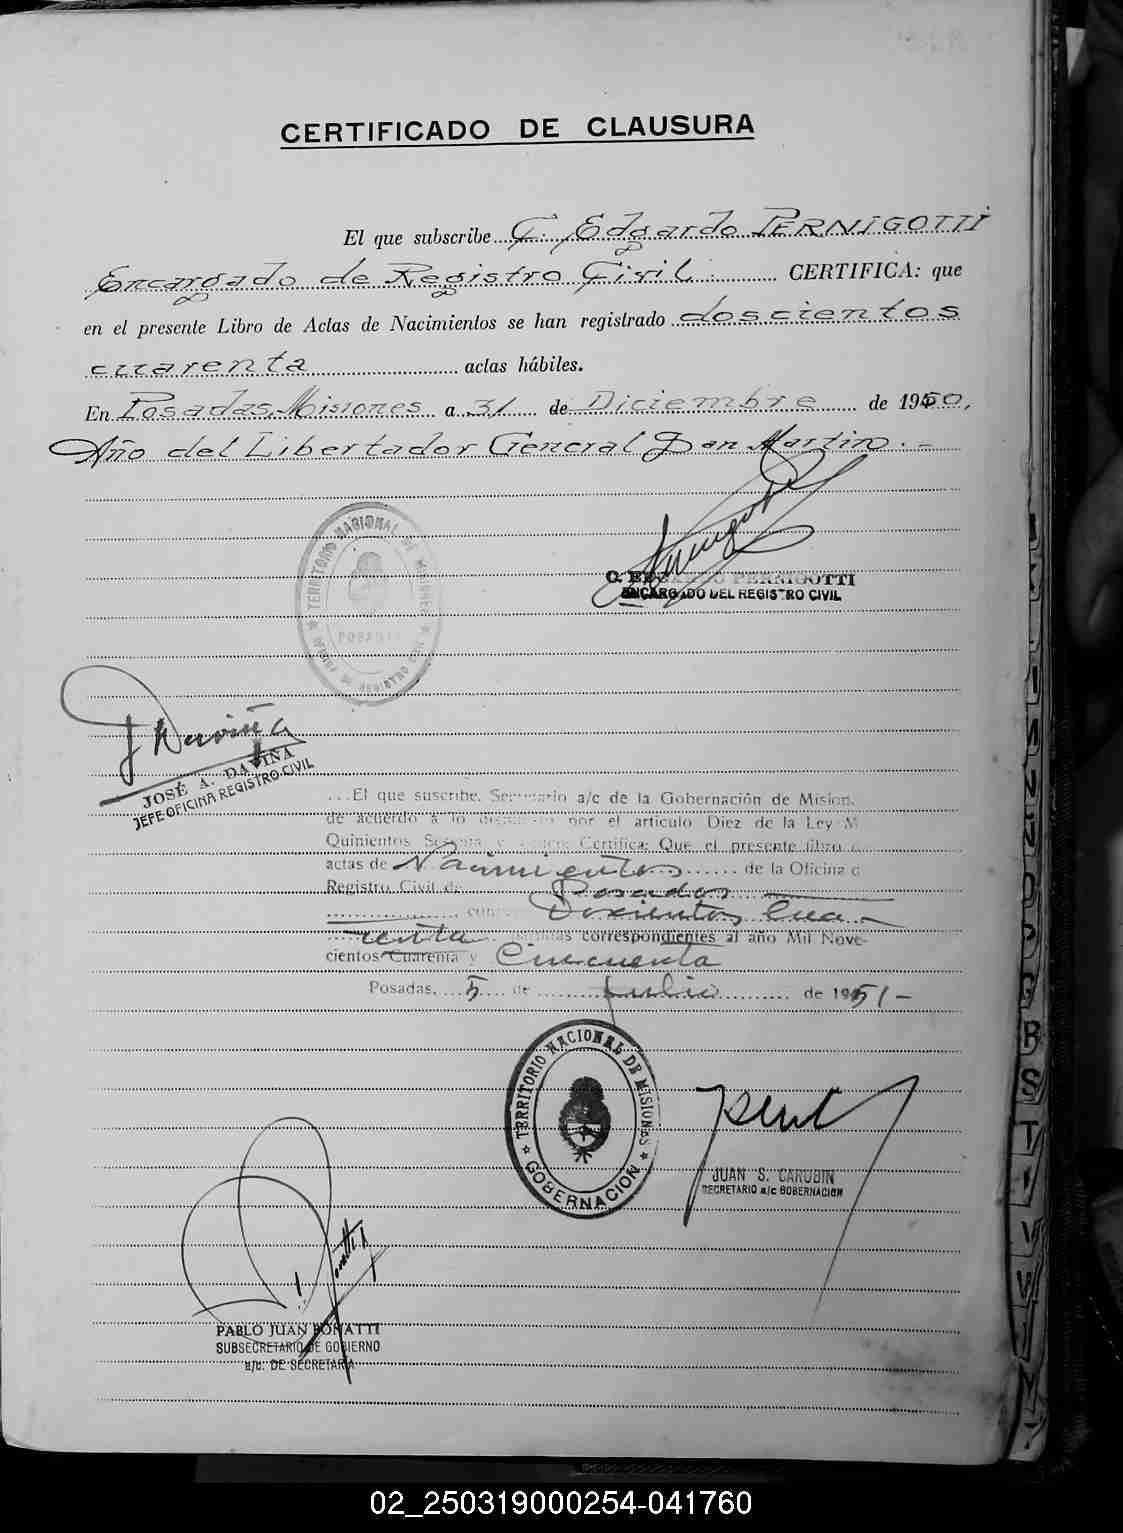 CERTIFICADO DE CLAUSURA
El que subscribe C. Edgardo PERNIGOTTI
Encargado de Registro Civil CERTIFICA: que
en el presente Libro de Actas de Nacimientos se han registrado doscientos
cuarenta actas hábiles.
En Posadas, Misiones a 31 de Diciembre de 1950,
Año del Libertador General San Martin.-
TERRITORIO NACIONAL DE MISIONES
POSADAS
OFICINA DE REGISTRO CIVIL
C. EDGARDO PERNIGOTTI
ENCARGADO DEL REGISTRO CIVIL
J Daviña
JOSÉ A. DAVIÑA
JEFE OFICINA REGISTRO CIVIL
...El que suscribe, Secretario a/c de la Gobernación de Mision
de acuerdo a lo por el artículo Diez de la Ley M
Quinientos Certifica: Que el presente libro d
actas de Nacimientos de la Oficina d
Registro Civil de Posadas
Doscientos Cua-
renta correspondientes al año Mil Nove-
cientos Cuarenta y Cincuenta
Posadas, 5 de Julio de 1951-
TERRITORIO NACIONAL DE MISIONES
GOBERNACION
JUAN S. CARUBIN
SECRETARIO a/c GOBERNACION
PABLO JUAN BONATTI
SUBSECRETARIO DE GOBIERNO
a/c. DE SECRETARIA
02_250319000254-041760